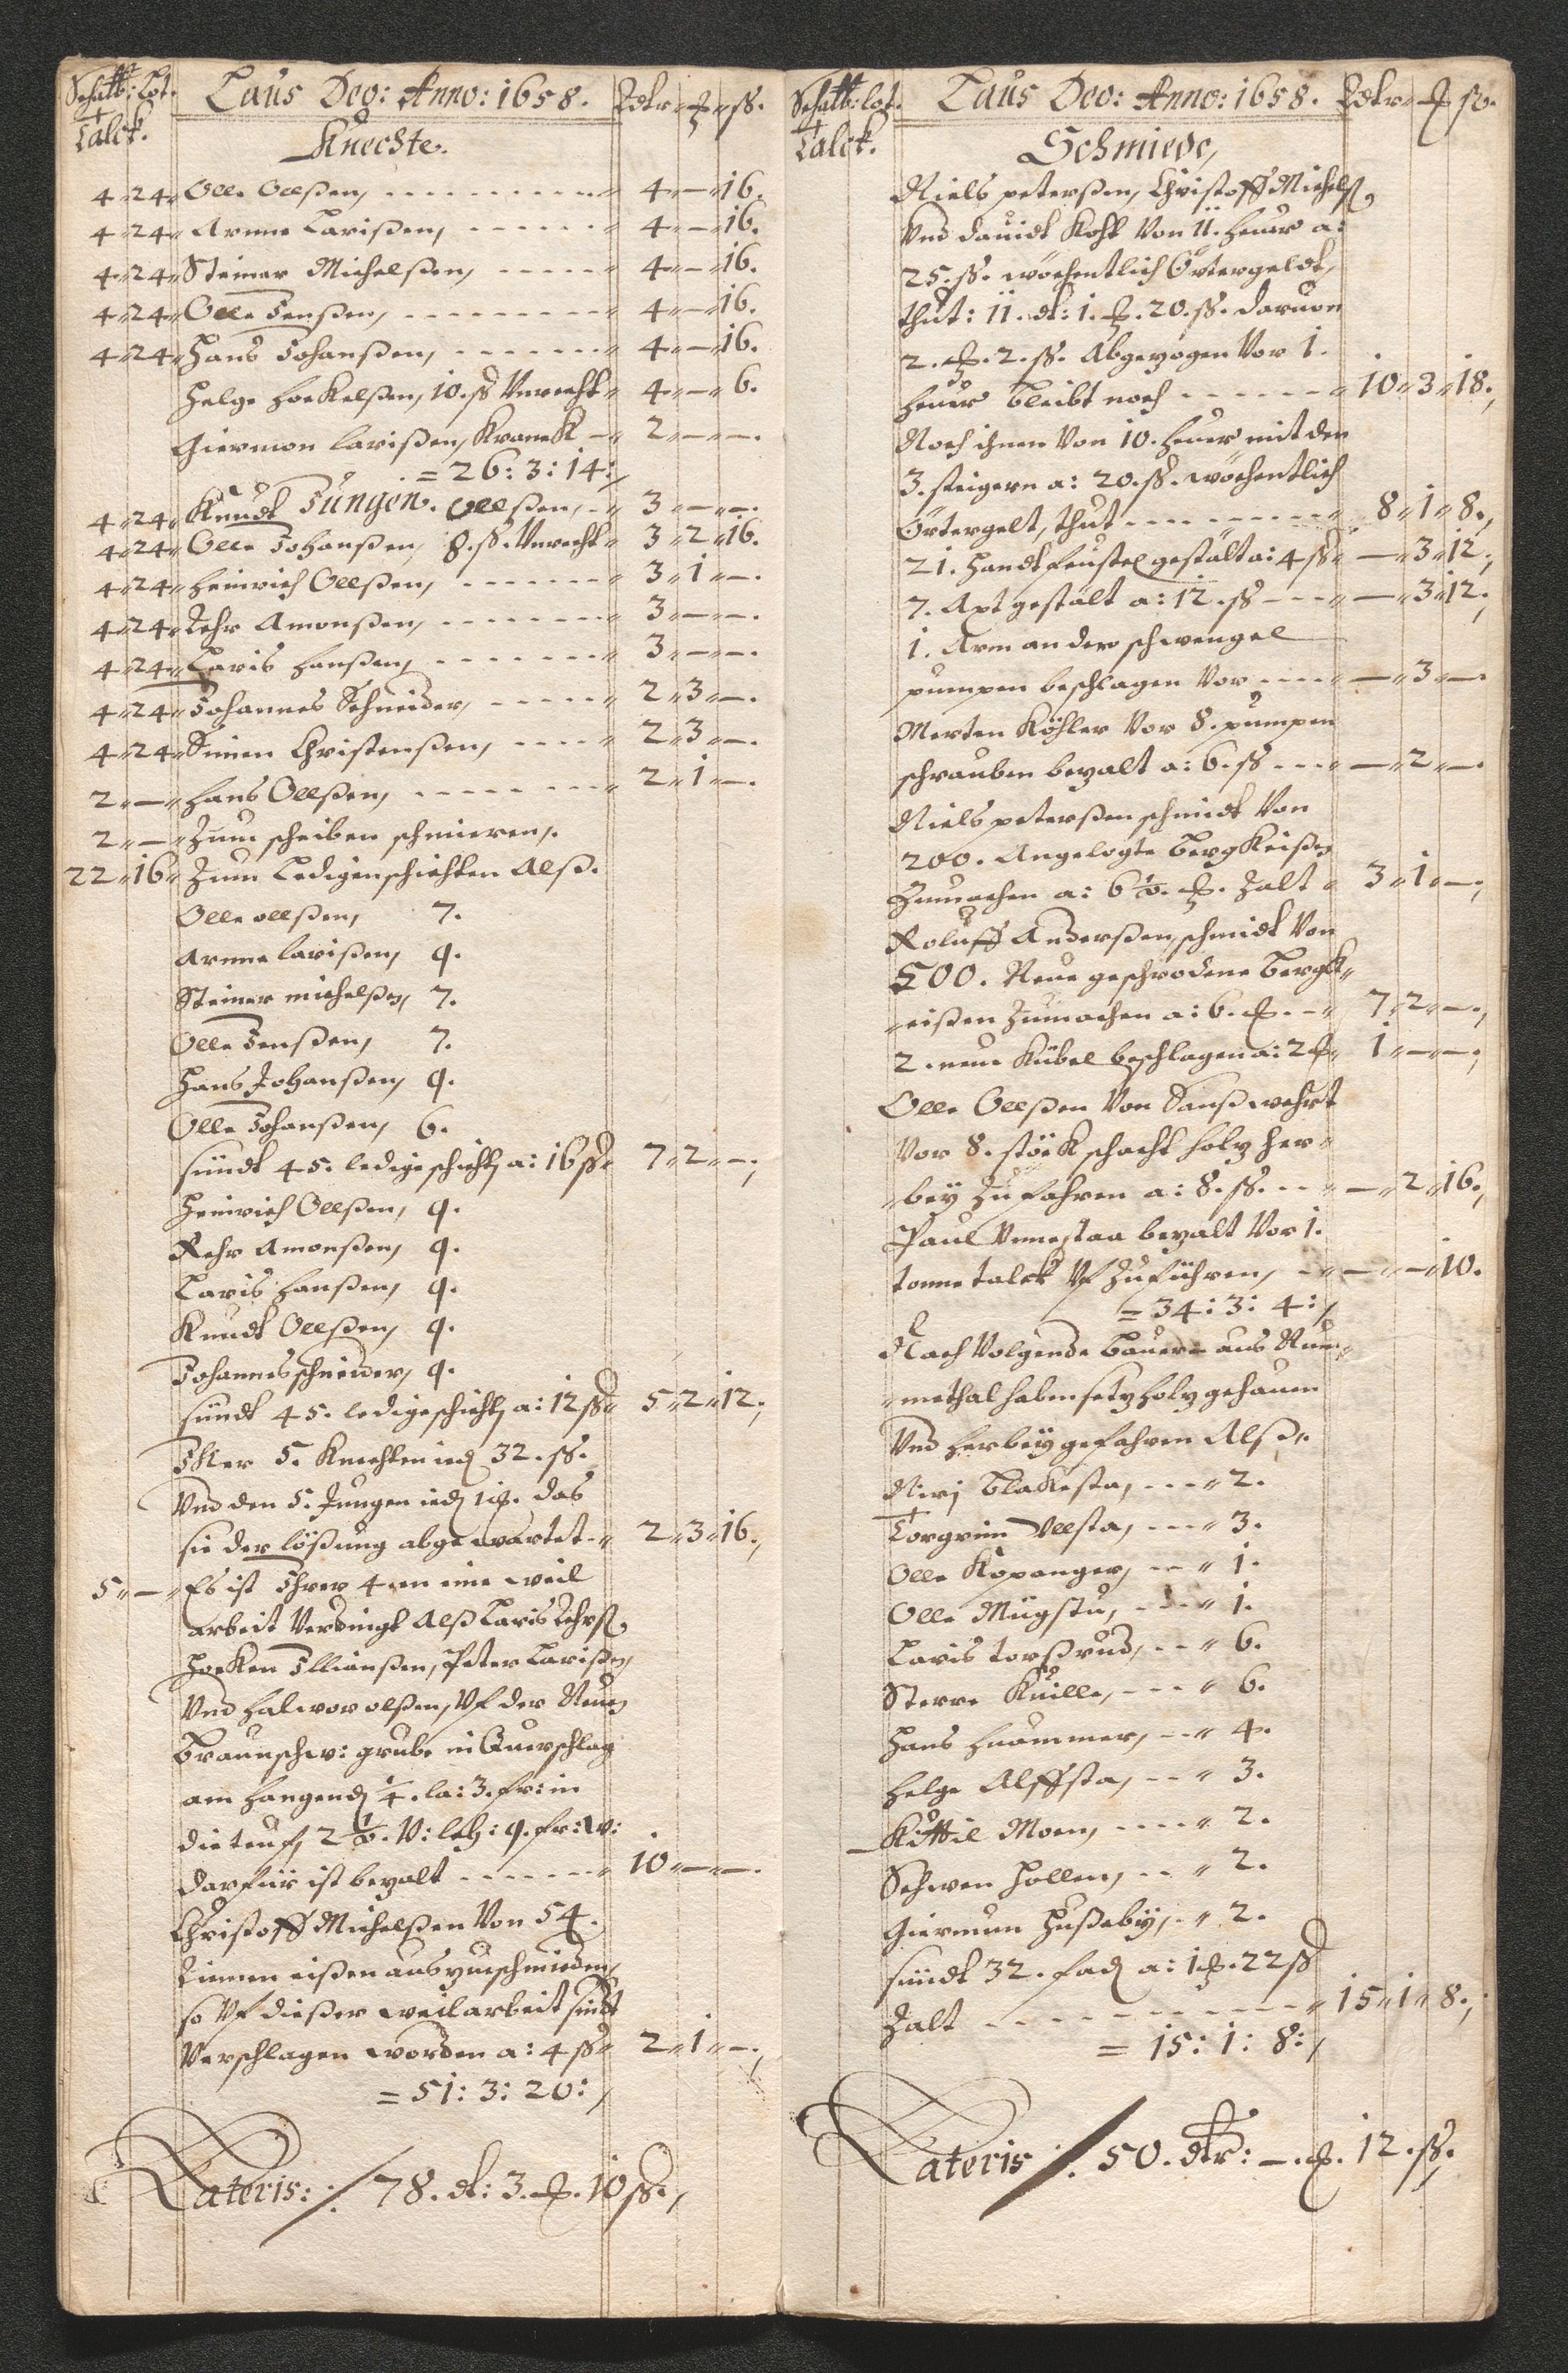 Schalt: Lot. Laus Deo: Anno: 1658. Rdtr ort ß.
Talck.
Knechte.
4 24 Olle Ollßen, 4 — 16.
4 24 Arnne Larißen, 4 — 16.
4 24 Steiner Michelßen, 4 — 16.
4 24 Olle Jenßen, 4 — 16.
4 24 Hans Johanßen, 4 — 16.
Helge Hoekelßen, 10. ß Vnrecht 4 — 6.
Giermon Larißen, Kranck 2 — —.
= 26: 3: 14:
Jüngen.
4 24 Knudt Ollßen, 3 — —.
4 24 Olle Johanßen, 8. ß. Vnrecht 3 2 16.
4 24 Heinrich Ollßen, 3 1 —.
4 24 Rehr Amonßen, 3 — —.
4 24 Laris Hanßen, 3 — —.
4 24 Johannes Schneider, 2 3 —.
4 24 Simen Christenßen, 2 3 —.
2 — Hans Ollßen, 2 1 —.
2 — Zum scheiben schmieren.
22 16 Zum Ledigenschichten Alß.
Olle ollßen, 7.
Arnne larißen, 9.
Steiner michelßen, 7.
Olle Jenßen, 7.
Hans Johanßen, 9.
Olle Johanßen, 6.
sündt 45. ledige schicht a: 16 ß 7 2 —.
Heinrich Ollßen, 9.
Rehr Amonßen, 9.
Laris Hanßen, 9.
Knudt Ollßen, 9.
Johannes schneider, 9.
sündt 45. ledige schicht a: 12 ß 5 2 12.
Jller 5. Knechten ied 32. ß.
Vnd den 5. Jungen ied 1 ort. das
sie der lößung abgewartet 2 3 16.
5 — Es ist Jhrer 4 en eine weil
arbeit Verdingt Alß Laris Rehrß.
Hoeken Illianßen, Peter Larißen,
Vnd Halwor olßen, Vf der Neuen
Braunschw: grube in Querschlag
am Hangend 1/4. la: 3. fr: in
die teuf, 2 1/2. V: lch: 9. fr: W:
darfür ist bezalt 10 — —.
Christoff Michelßen Von 54.
Rimen eißen auszuschmieden,
so Vf dießer weilarbeit sindt
Verschlagen worden a: 4 ß 2 1 —.
= 51: 3: 20:
Lateris: 78. dt: 3. ort. 10 ß.
Schalt: lot. Laus Deo: Anno: 1658. Rdtr ort ß.
Talck.
Schmiede,
Niels peterßen, Christoff Michelß,
Vnd dauidt Kohl Von 11. Heuer a:
25. ß. wöchentlich Örtergeldt,
thut: 11. dt: 1. ort. 20. ß. daruon
2. ort. 2. ß. Abgezogen Vor 1.
Heuer bleibt noch 10 3 18.
Noch ihnen Von 10. Heuer mit den
3. steigern a: 20. ß. wöchentlich
Örtergelt, thut 8 1 8.
21. Handtfeustel gestält a: 4 ß — 3 12.
7. Axt gestält a: 12. ß — 3 12.
1. Arm an der schwengel
pumpen beschlagen Vor — 3 —.
Merten Köhler Vor 8. pumpen
schrauben bezalt a: 6. ß — 2 —.
Niels peterßen schmidt Von
200. Angelegte Bergkeißen
Zumachen a: 6 1/2. ort. Zalt 3 1 —.
Roluff Anderßen, schmidt Von
500. Neue geschrodene Bergk
eißen Zumachen a: 6. ort. 7 2 —.
2. neue Kübel beschlagen a: 2 ort 1 — —.
Olle Ollßen Von Sanßwehrt
Vor 8. stöck schacht holz her
bey Zu fahren a: 8. ß. — 2 16.
Paul Vnnestaa bezalt Vor 1.
tonne talck Vf Zuführen, — — 10.
= 34: 3: 4:
Nach Volgende Bauern aus Num
methal haben setzholz gehauen
Vnd herbey gefahren Alß.
Nirj Blakesta, 2.
Torgrim Vllsta, 3.
Olle Kopanger, 1.
Olle Mügstu, 1.
Laris torßrud, 6.
Sterre Kuille, 6.
Hans Huammer, 4.
Helge Alffsta, 3.
Kittil Moen, 2.
Schwen Hollen, 2.
Giermun Hußeby, 2.
sündt 32. fad a: 1 ort. 22 ß
Zalt 15 1 8.
= 15: 1: 8:
Lateris 50. dtr: —. ort. 12. ß.